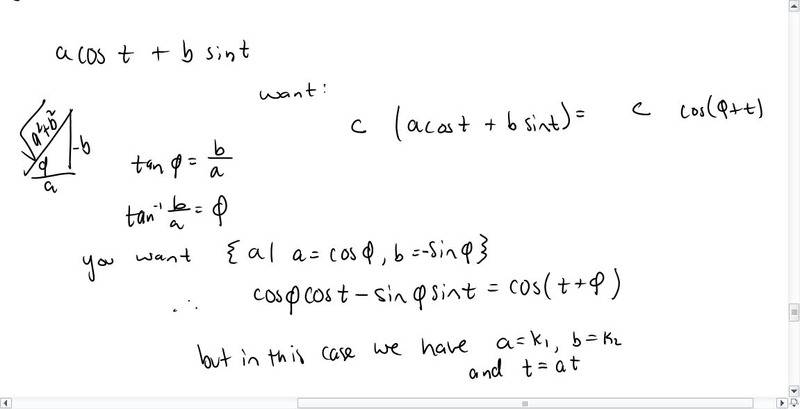 a cos t + b sint
want:
c (acost + b sint) = c cos(φ+t)
√a²+b²
-b
φ
a
tan φ = b/a
tan⁻¹ b/a = φ
you want {a| a = cosφ, b = -sinφ}
∴ cosφcost - sinφsint = cos(t+φ)
but in this case we have a=k₁, b=k₂
and t = at